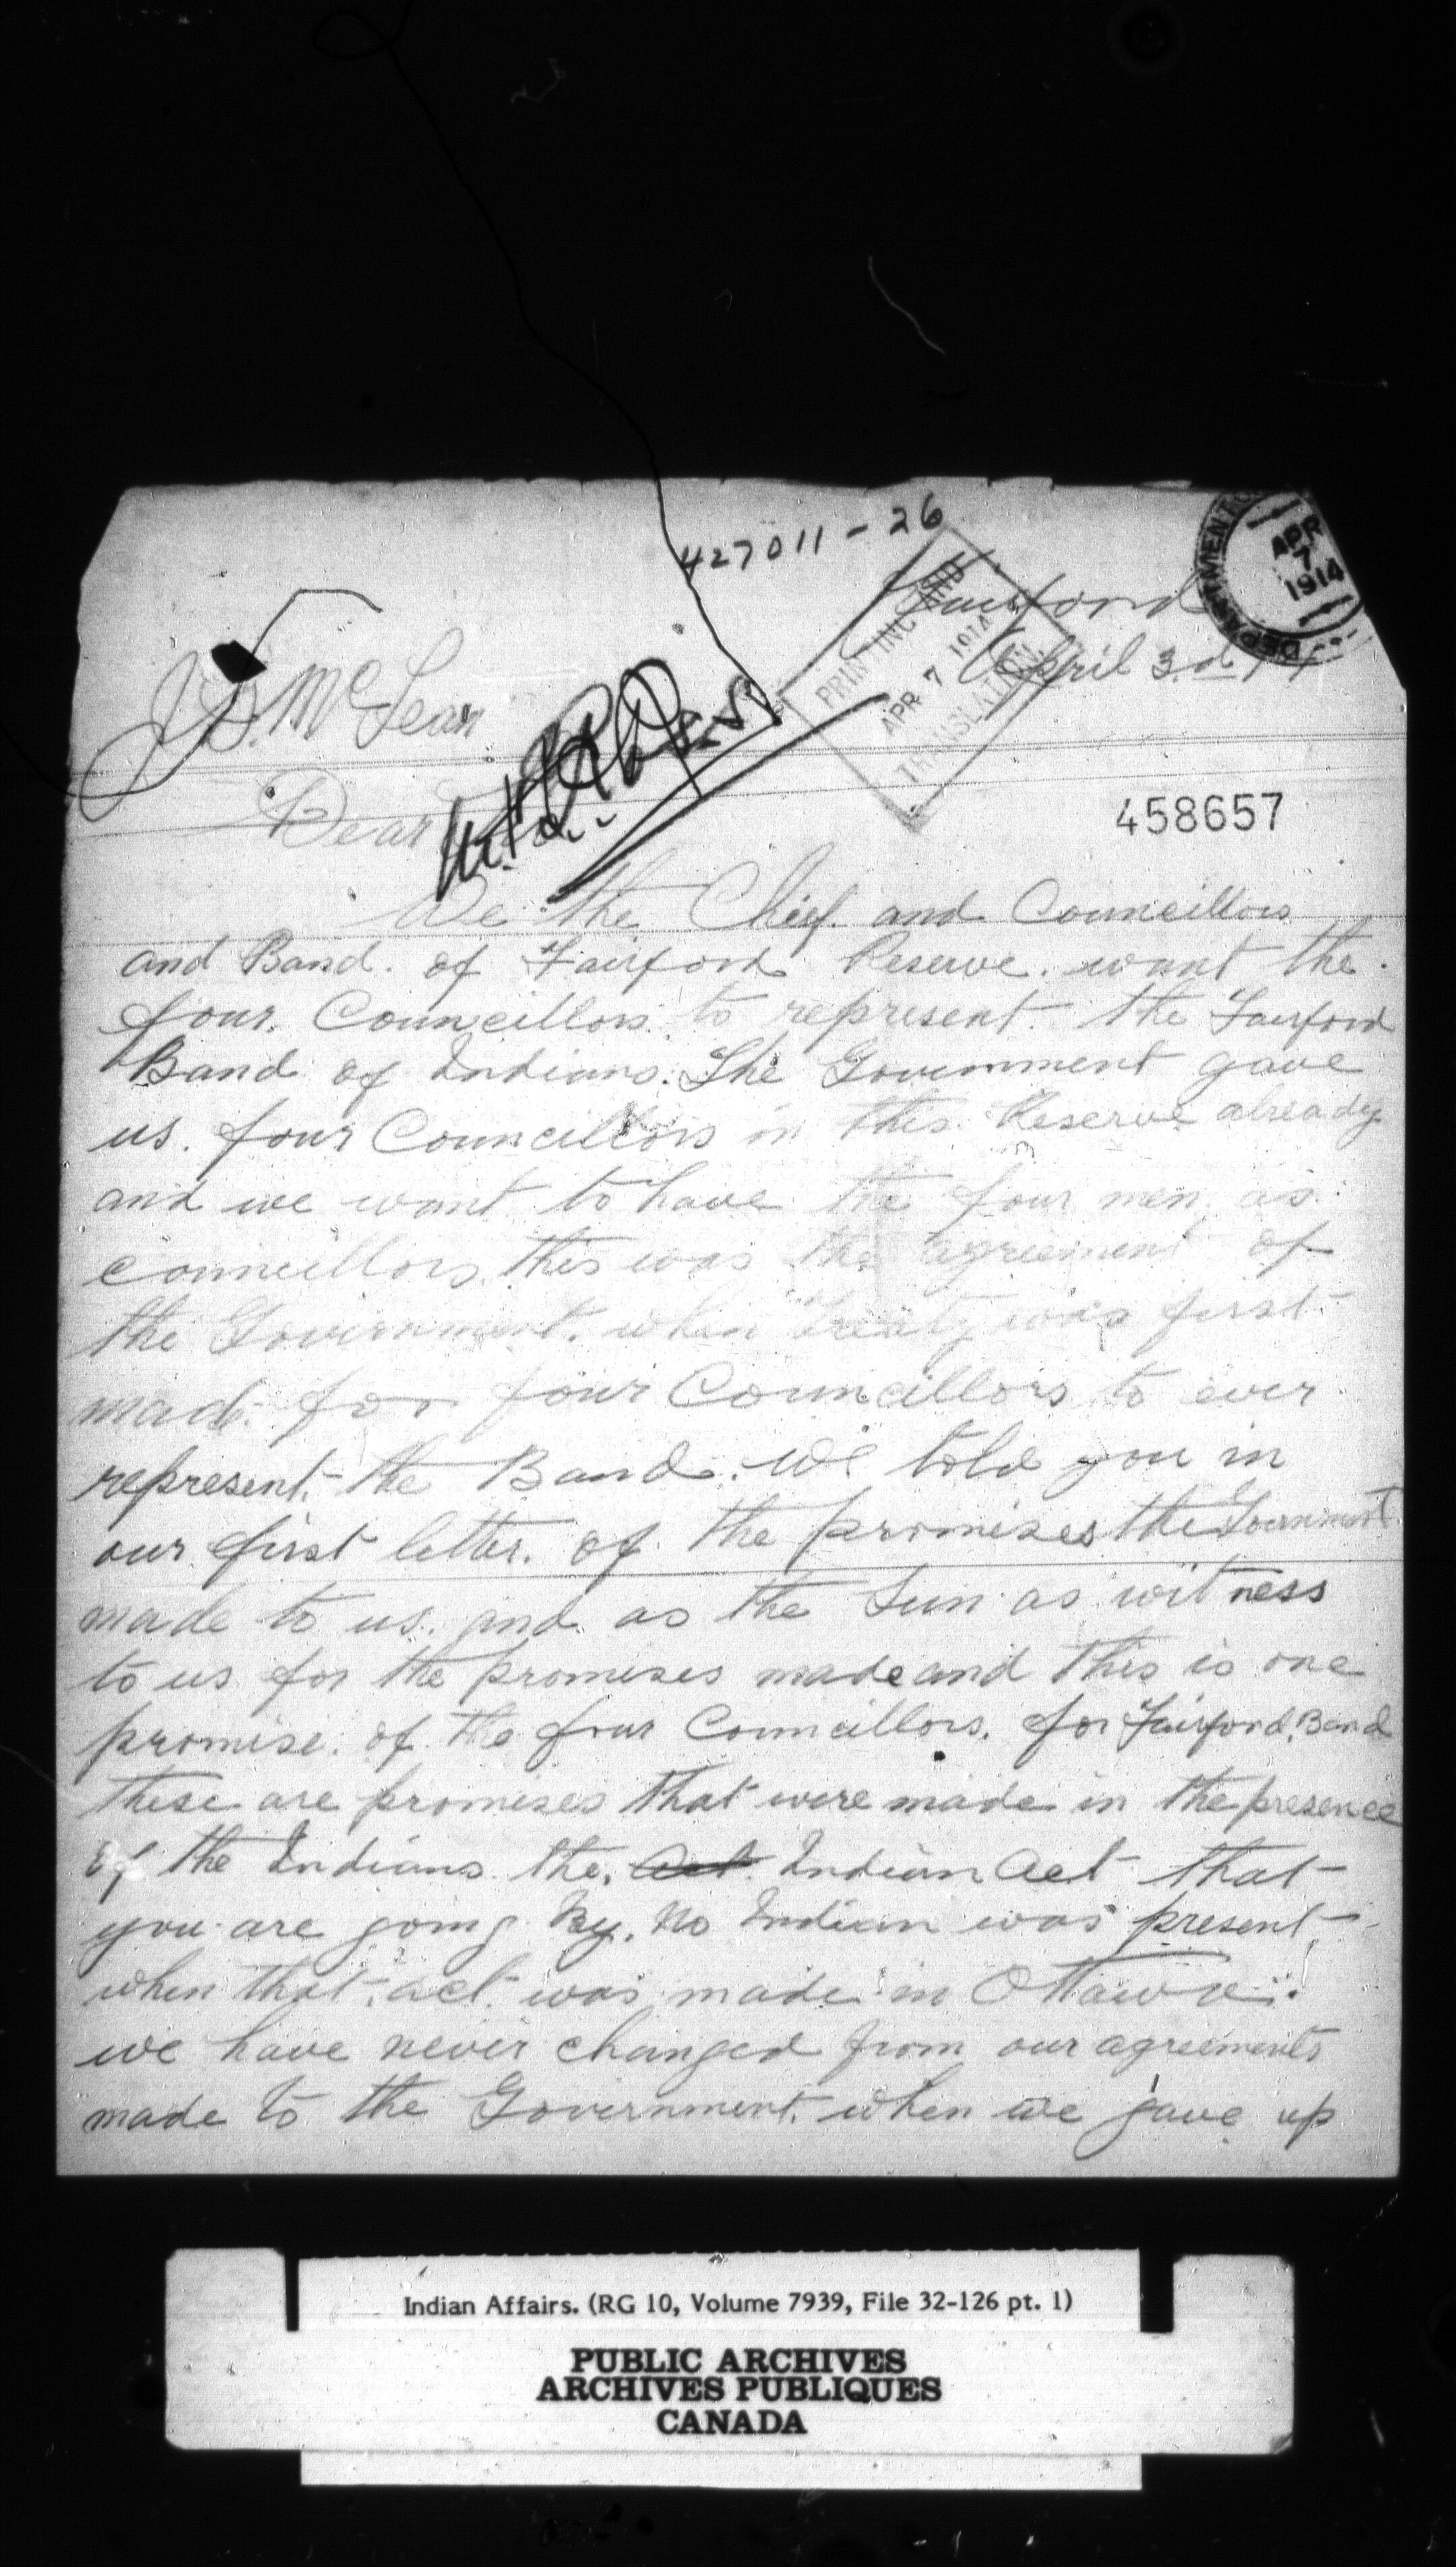 427011-26
Fairford
April 3rd 14
DEPARTMENT O
APR
7
1914
PRINTING AND
APR 7 1914
TRANSLATION.
J. D. McLean
458657
Dear
We the Chief. and Councillors
and Band. of Fairford Reserve. want the.
four. Councillors to represent. the Fairford
Band of Indians. The Government gave
us. four Councillors in this Reserve already
and we want to have the four men as
councillors. this was the agreement of
the Government. when treaty was first
made. for four Councillors to ever
represent. the Band. We told you in
our first letter. of the promises the Government
made to us. and as the Sun as witness
to us for the promises made and this is one
promise. of the four Councillors. for Fairford. Band
these are promises that were made in the presence
of the Indians the. Act Indian Act that
you are going By. no Indian was present
when that. act. was made in Ottawa.
we have never changed from our agreements
made to the Government. when we gave up
Indian Affairs. (RG 10, Volume 7939, File 32-126 pt. 1)
PUBLIC ARCHIVES
ARCHIVES PUBLIQUES
CANADA